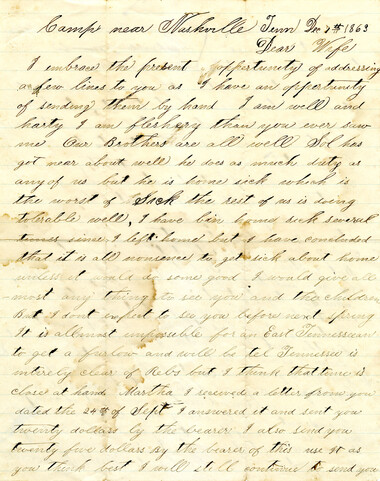 Camp near Nashville Tenn Dec 7th 1863
Dear Wife
I embrace the present opportunity of addressing
a few lines to you as I have an oppertunity
of sending them by hand I am well and
harty I am fleshery than you ever saw
me. Our Brothers are all well Sol has
got near about well he does as much duty as
any of us but he is home sick which is
the worst of Sick the rest of us is doing
tolerable well, I have bin homd sick several
times since I left home but I have concluded
that it is all nonsence to get sick about home
unless it would do some good I would give all
most any thing to see you and the children
But I dont expect to see you before next spring
It is allmost impossible for an East Tennessean
to get a furlow and will be tel Tennessee is
entirely clear of Rebs but I think that time is
close at hand Martha I received a letter from you
dated the 24th of Sept I answered it and sent you
twenty dollars by the bearer I also send you
twenty five dollars by the bearer of this use it as
you think best I will still continue to send you